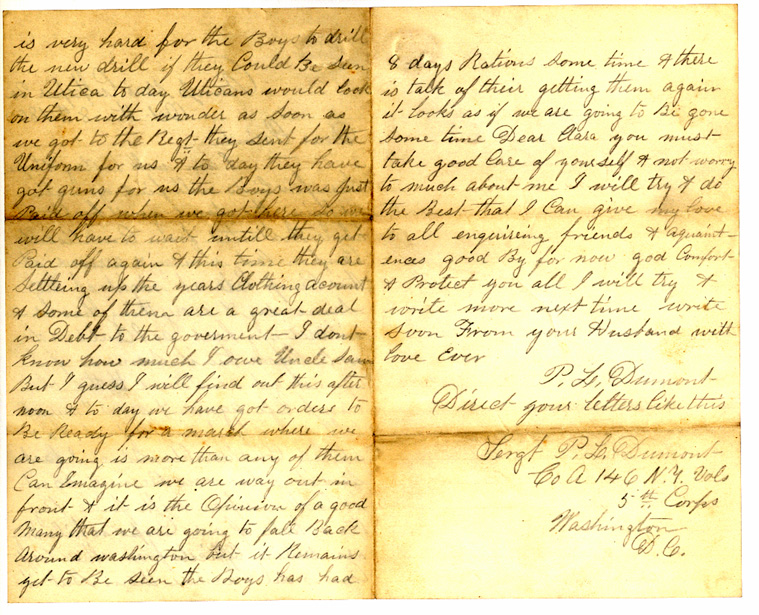 is very hard for the Boys to drill
the new drill if they Could Be seen
in Utica to day Uticans would look
on them with wonder as soon as
we got to the Regt they sent for the
Uniform for us & to day they have
got guns for us the Boys was just
Paid off when we got here so we
will have to wait untill they get
Paid off again & this time they are
Settleing up the years Clothing acount
& Some of them are a great deal
in Debt to the goverment I dont
know how much I owe Uncle Sam
But I guess I will find out this after
noon & to day we have got orders to
Be Ready for a march where we
are going is more than any of them
Can Imagine we are way out in
front & it is the Opinion of a good
many that we are going to fall Back
around washington but it Remains
yet to Be seen the Boys has had
8 days Rations some time & there
is talk of their getting them again
it Looks as if we are going to Be gone
Some time Dear Clara you must
take good Care of yourself & not worry
to much about me I will try & do
the Best that I Can give my love
to all enquiring friends & aquaint-
ences good By for now god Comfort
& Protect you all I will try &
write more next time write
soon From your Husband with
love Ever
P. L. Dumont
Direct your letters like this
Sergt P. L. Dumont
Co A 146 N.Y. Vols
5th Corps
Washington
D.C.